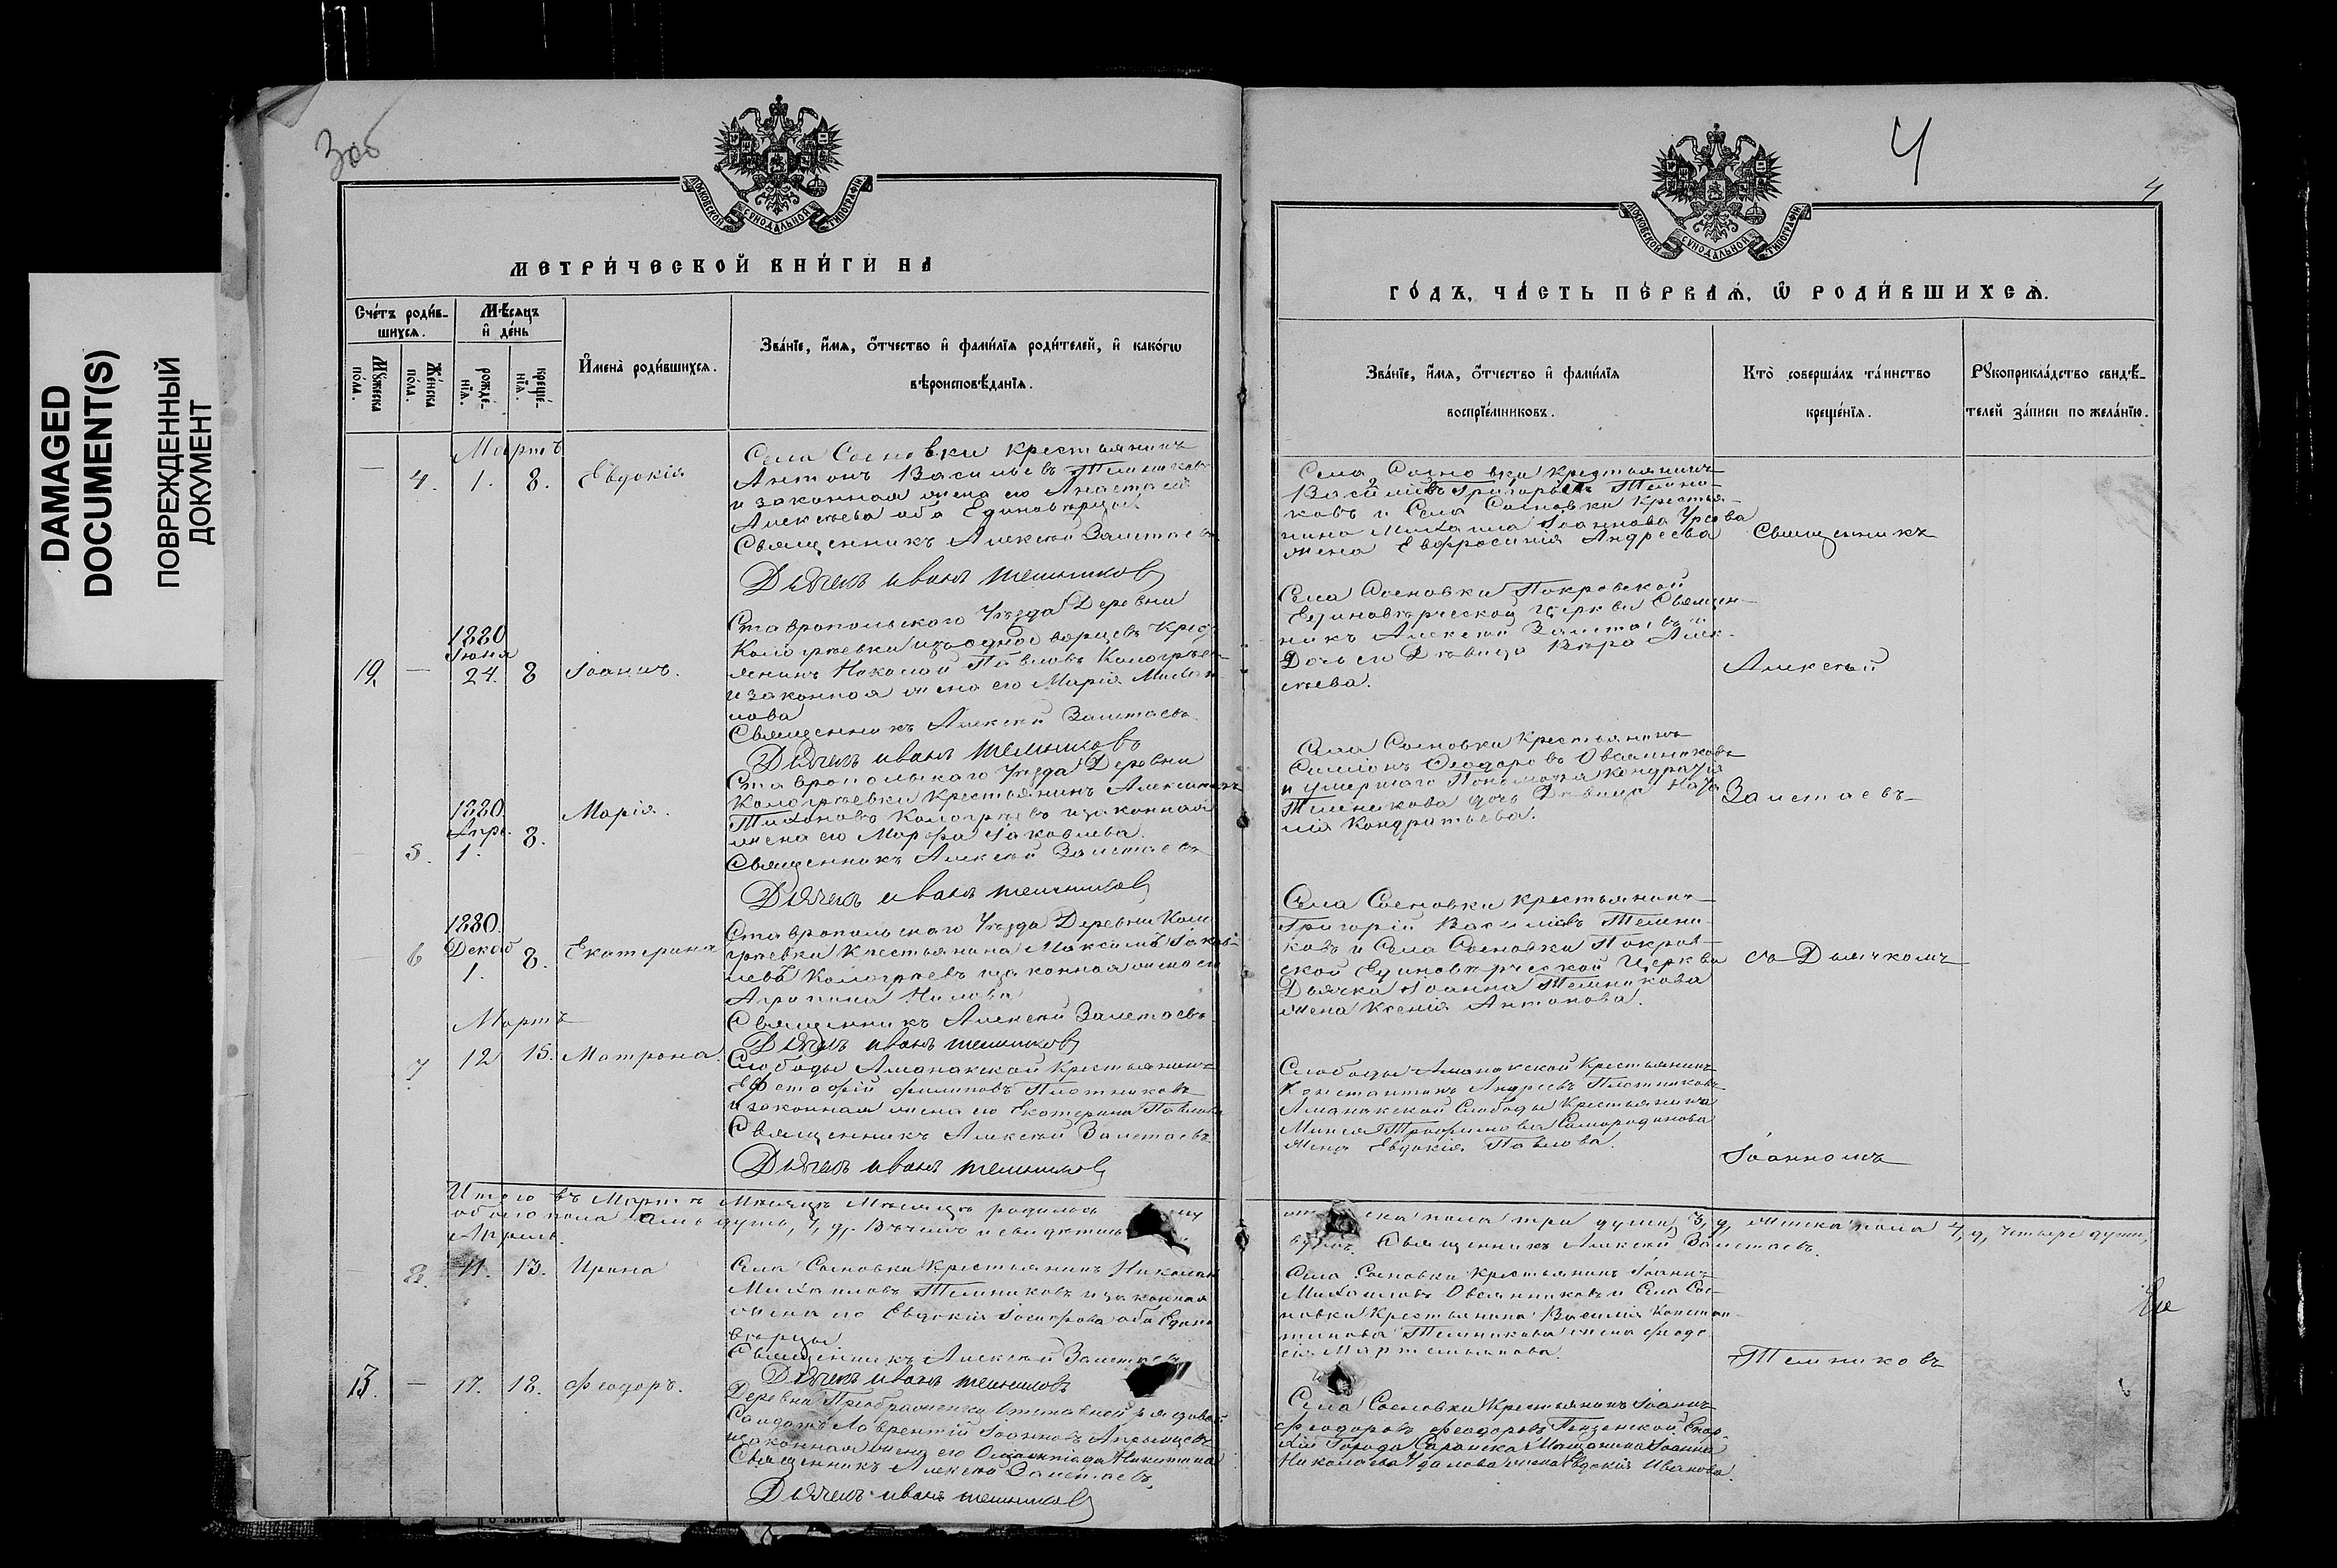 DAMAGED
DOCUMENT(S)
ПОВРЕЖДЕННЫЙ
ДОКУМЕНТ
МОСКОВСКОЙ СѴНОДАЛЬНОЙ ТИПОГРАФІИ
МЕТРИ́ЧЕСКОЙ КНИ́ГИ НА
Сче́тъ роди́в-
шихся.
Мѣ́сяцъ
и де́нь
Мꙋ́жеска
по́ла.
Же́нска
по́ла.
рожде́-
нїя.
креще́-
нїя.
И҆мена̀ роди́вшихся.
Зва́нїе, и҆́мя, ѻ҆́тчество и҆ фами́лїя роди́телей, и҆ како́гѡ
вѣроисповѣ́данїя.
Мартъ
4. 1. 8. Евдокія
Села Сосновки крестьянинъ
Антонъ Васильевъ Темниковъ
и законная жена его Анастасія
Алексѣева оба Единовѣрцы
Священникъ Алексѣй Залетаевъ
Дьячекъ иванъ темниковъ
1880
Іюня
19. — 24. 8 Іоаннъ.
Ставропольскаго Уѣзда Деревни
Кологрѣевки изъ однодворцевъ Крес
янинъ Николай Павловъ Кологрѣев
и законная жена его Марія Михаи
лова
Священникъ Алексѣй Залетаевъ.
Дьячекъ иванъ темниковъ
1880.
Апр.
5. 1. 8. Марія.
Ставропольскаго Уѣзда Деревни
Кологрѣевки Крестьянинъ
Тихоновъ Кологрѣевъ и законная
жена его Марфа Іаковлева.
Священникъ Алексѣй Залетаевъ
Дьячекъ иванъ темниковъ
1880.
Декаб
6 1. 8. Екатерина
Ставропольскаго Уѣзда Деревни Коло
грѣевки Крестьянина Максимъ Іаков-
левъ Кологрѣевъ и законная жена его
Агропина Нилова
Священникъ Алексѣй Залетаевъ
Дьячекъ иванъ темниковъ
Мартъ
7 12 15. Матрона.
Слободы Аманакской Крестьянинъ
Евстафій Филиповъ Плотниковъ
и законная жена его Екатерина Павлова
Священникъ Алексѣй Залетаевъ
Дьячекъ иванъ темниковъ
Итого въ Мартѣ Мѣсяцѣ Мѣсяцѣ родилось
обоего пола семь душъ, 7, д.
Апрель.
8. 11. 13. Ирина
Села Сосновки Крестьянинъ Николай
Михаиловъ Темниковъ и законная
жена его Евдокія оба Едино
вѣрцы
Священникъ Алексѣй Залетаевъ
Дьячекъ иванъ темниковъ
13. — 17. 18. Феодоръ.
Деревни Преображенки Отставной рядовой
Солдатъ Лаврентій Іоанновъ
и законная жена его Никитина
Священникъ Алексѣй Залетаевъ.
Дьячекъ иванъ темниковъ
4
4
МОСКОВСКОЙ СѴНОДАЛЬНОЙ ТИПОГРАФІИ
ГО́ДЪ, ЧА́СТЬ ПЕ́РВАЯ, Ѡ҆ РОДИ́ВШИХСЯ.
Зва́нїе, и҆́мя, ѻ҆́тчество и҆ фами́лїя
воспрїе́мниковъ.
Кто̀ соверша́лъ та́инство
креще́нїя.
Рꙋкоприкла́дство свидѣ́-
телей за́писи по жела́нїю.
Села Сосновки Крестьянинъ
Василій Григорьевъ Темни-
ковъ и Села Сосновки Крестья-
нина Михаила Іоаннова
жена Евфросинія Андреева
Села Сосновки Покровской
Единовѣрческой Церкви Священ-
никъ Алексѣй Залетаевъ и
Дочь его Дѣвица Вѣра Алек-
сѣева.
Села Сосновки Крестьянинъ
Симіонъ Феодоровъ Овсянниковъ
и умершаго Пономаря Кондратія
Темникова дочь Дѣвица Ната
лія Кондратьева.
Села Сосновки Крестьянинъ
Григорій Васильевъ Темни-
ковъ и Села Сосновки Покров-
ской Единовѣрческой Церкви
Дьячка Іоанна Темникова
жена Ксенія Антонова.
Слободы Аманакской Крестьянинъ
Константинъ Андреевъ Плотниковъ
Аманакской Слободы Крестьянина
Трофимова Самородинова
жена Евдокія Павлова.
пола три души, 3, д, женска пола 4, д, четыре души,
Священникъ Алексѣй Залетаевъ.
Села Сосновки Крестьянинъ Іоаннъ
Михаиловъ Овсянниковъ и Села Сос-
новки Крестьянина Василія Констан-
тинова Темникова жена Феодо
сія Мартемьянова.
Села Сосновки Крестьянинъ Іоаннъ
Феодоровъ Феодоровъ Пензенской Епар-
хіи Города Саранска Мещанина Іоанна
Николаева Удалова жена Евдокія Иванова.
Священникъ
Алексѣй
Залетаевъ
съ Дьячкомъ
Іоанномъ
Темниковъ